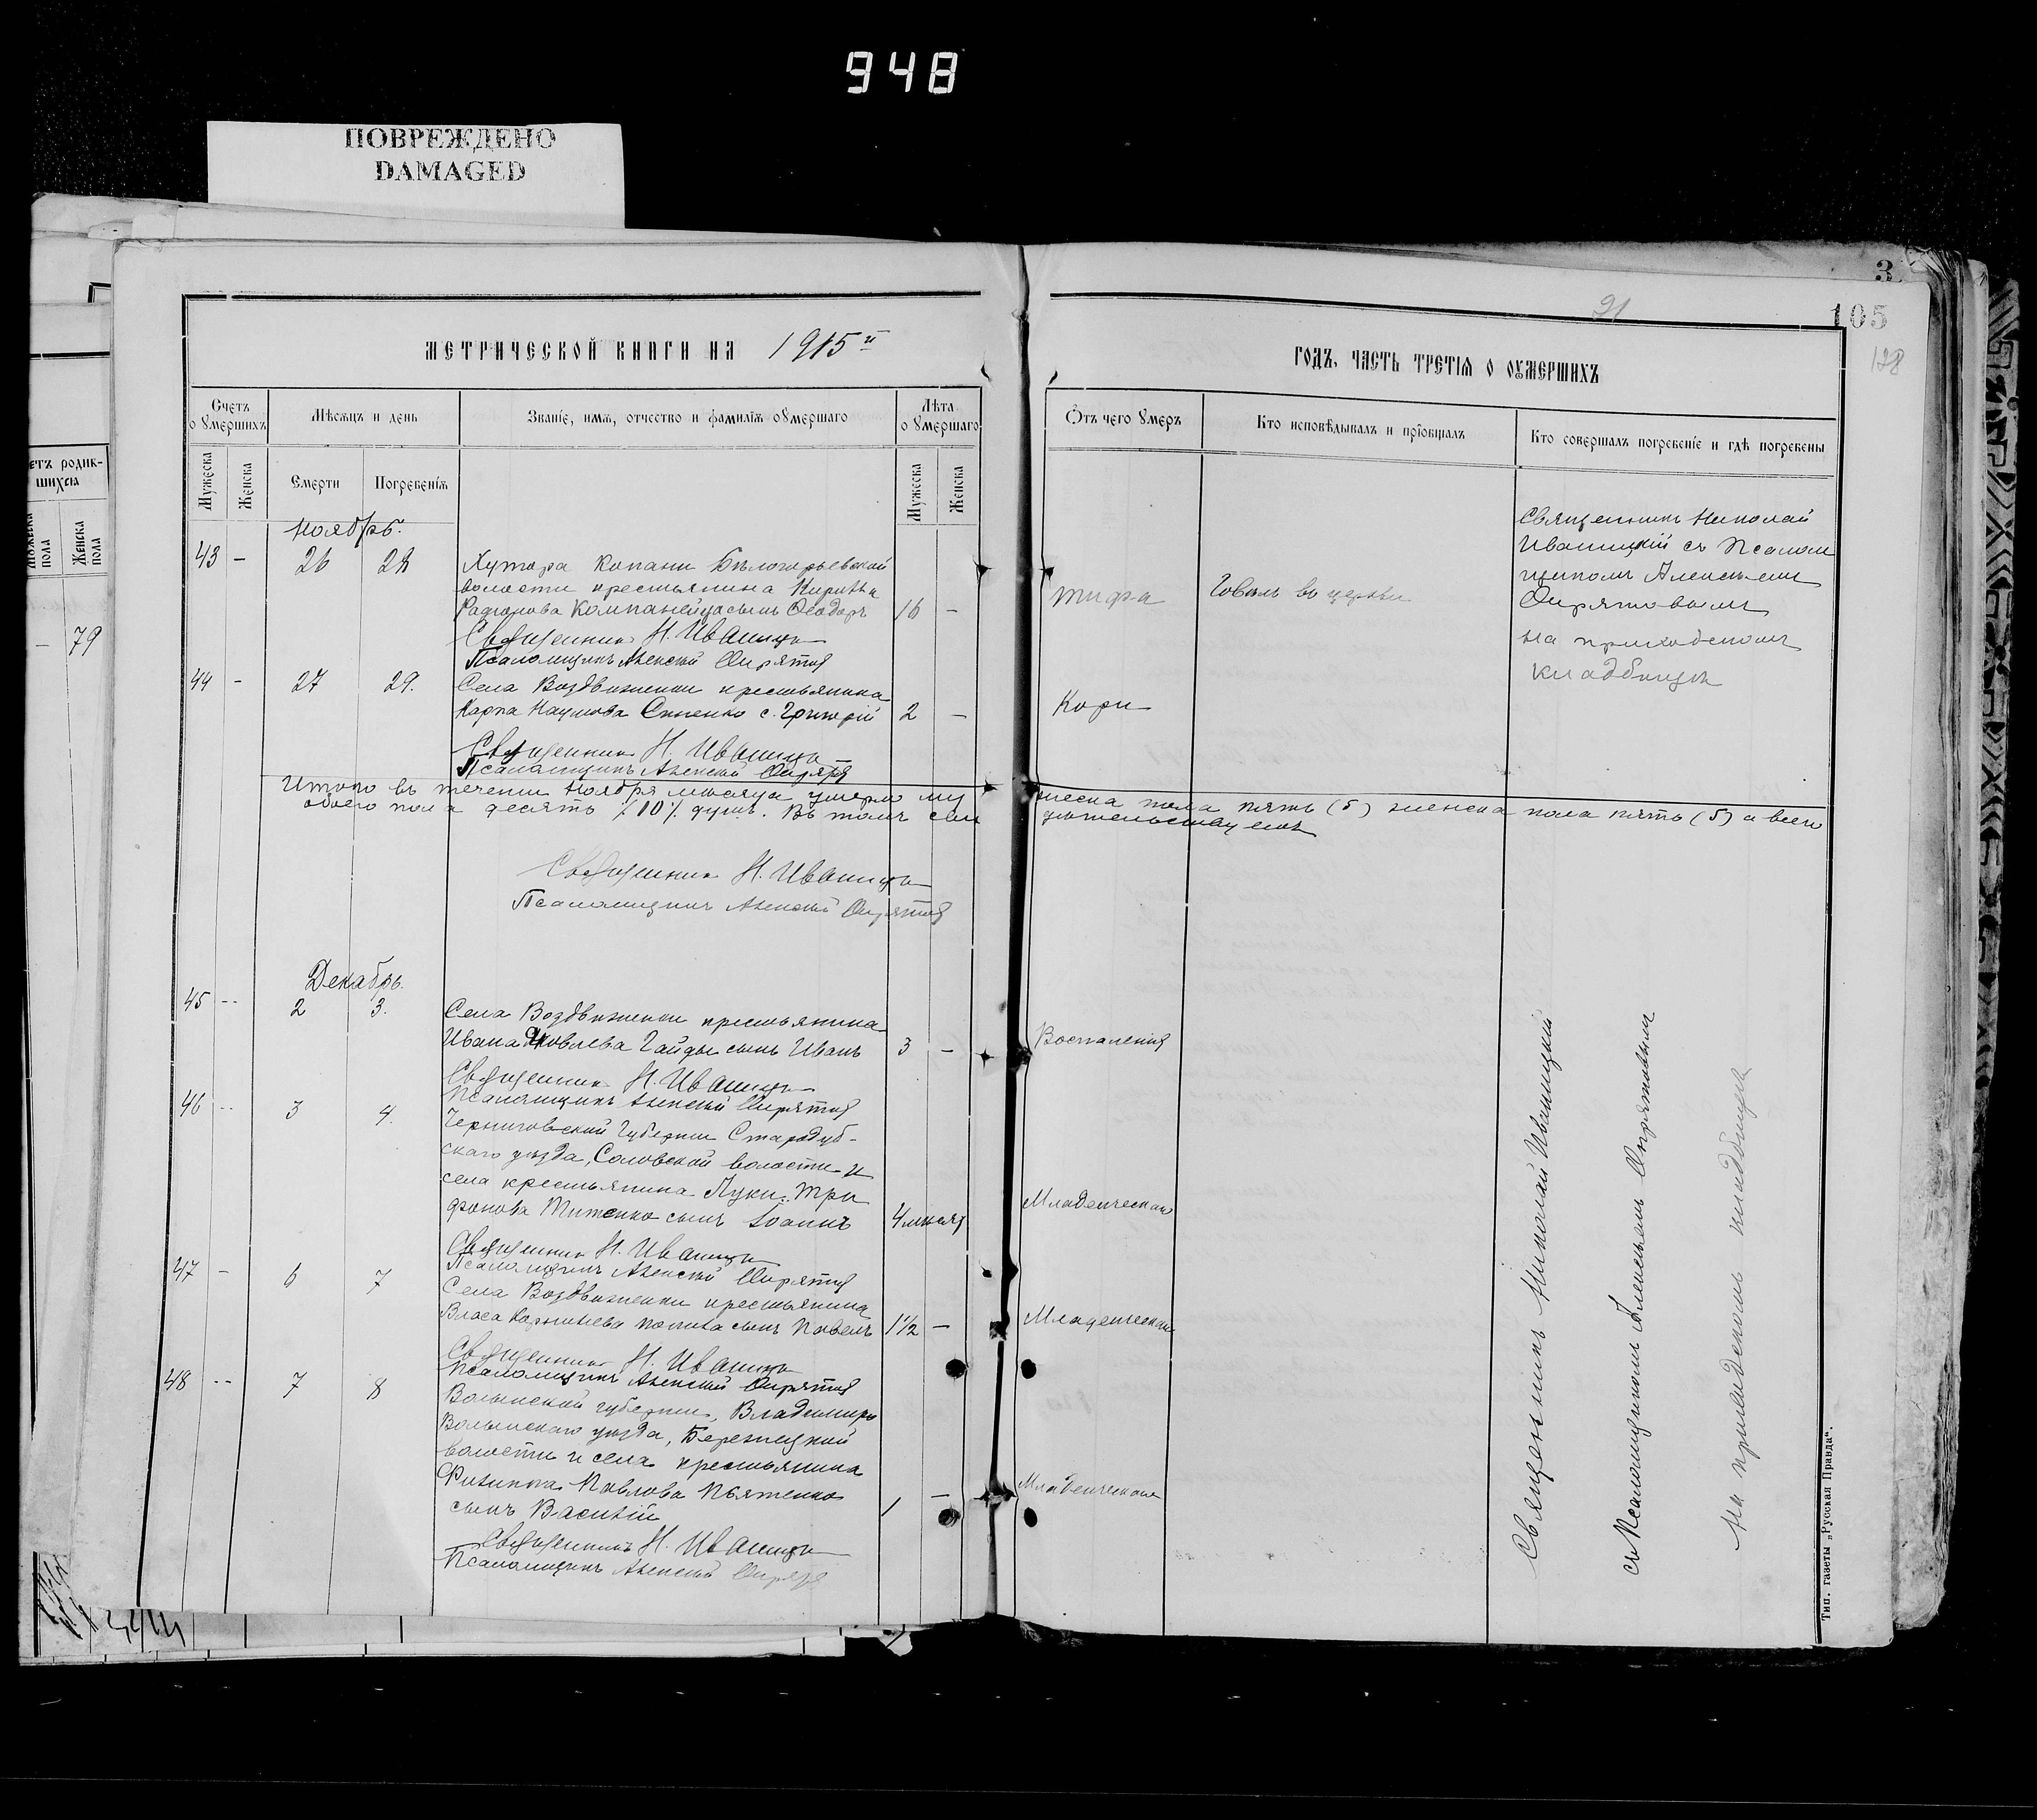 948
ПОВРЕЖДЕНО
DAMAGED
3
105
91
128
етъ родив-
шихся
Мужеска пола
Женска пола
— 79
МЕТРИЧЕСКОЙ КНИГИ НА 1915й
ГОДЪ, ЧАСТЬ ТРЕТІЯ О ОУМЕРШИХЪ
Счетъ оумершихъ
Мѣсяцъ и день
Званіе, имя, отчество и фамилія оумершаго
Лѣта оумершаго
Отъ чего умеръ
Кто исповѣдывалъ и пріобщалъ
Кто совершалъ погребеніе и гдѣ погребены
Мужеска
Женска
Смерти
Погребенія
Мужеска
Женска
Ноябрь.
43 — 26 28 Хутора Копани Бѣлогорьевской
волости крестьянина Кирилла
Радіонова Компанейца сынъ Ѳеодоръ 16 — Тифа Говѣлъ въ церкви
Священникъ Н. Иваницкі
Псаломщикъ Алексѣй Опрятов
Священникъ Николай
Иваницкій съ Псалом
щикомъ Алексѣем
Опрятовымъ
на приходскомъ
кладбищѣ
44 - 27 29. Села Воздвиженки крестьянина
Карпа Наумова с. Григорій 2 — Кори
Священникъ Н. Иваницкі
Псаломщикъ Алексѣй Опрят
Итого въ теченіи Ноября мѣсяца умерло му
жеска пола пять (5) женска пола пять (5) а всего
обоего пола десять /10/. душъ. Въ томъ сви
дѣтельствуемъ
Священникъ Н. Иваницкі
Псаломщикъ Алексѣй Опрятов
Декабрь.
45 -- 2 3. Села Воздвиженки крестьянина
Ивана Яковлева Гайды сынъ Иванъ 3 — Воспаленія
Священникъ Н. Иваницкі
Псаломщикъ Алексѣй Опрятов
46 -- 3 4. Черниговской Губерніи Стародуб-
скаго уѣзда, Соловской волости и
села крестьянина Луки Три
фонова Титенко сынъ Іоаннъ 4 мѣсяц Младенческая
Священникъ Н. Иваницкі
Псаломщикъ Алексѣй Опрятов
47 - 6 7 Села Воздвиженки крестьянина
Власа Корнилева сынъ Павелъ 1½ — Младенческая
Священникъ Н. Иваницкі
Псаломщикъ Алексѣй Опрятов
48 -- 7 8 Волынской губерніи, Владимиро
Волынскаго уѣзда, Бережецкой
волости и села крестьянина
Филиппа Павлова
сынъ Василій 1 — Младенческая
Священникъ Н. Иваницкі
Псаломщикъ Алексѣй Опрят
Священникъ Николай Иваницкій
съ Псаломщикомъ Алексѣемъ Опрятовымъ
на приходскомъ кладбищѣ
Тип. газеты „Русская Правда“.